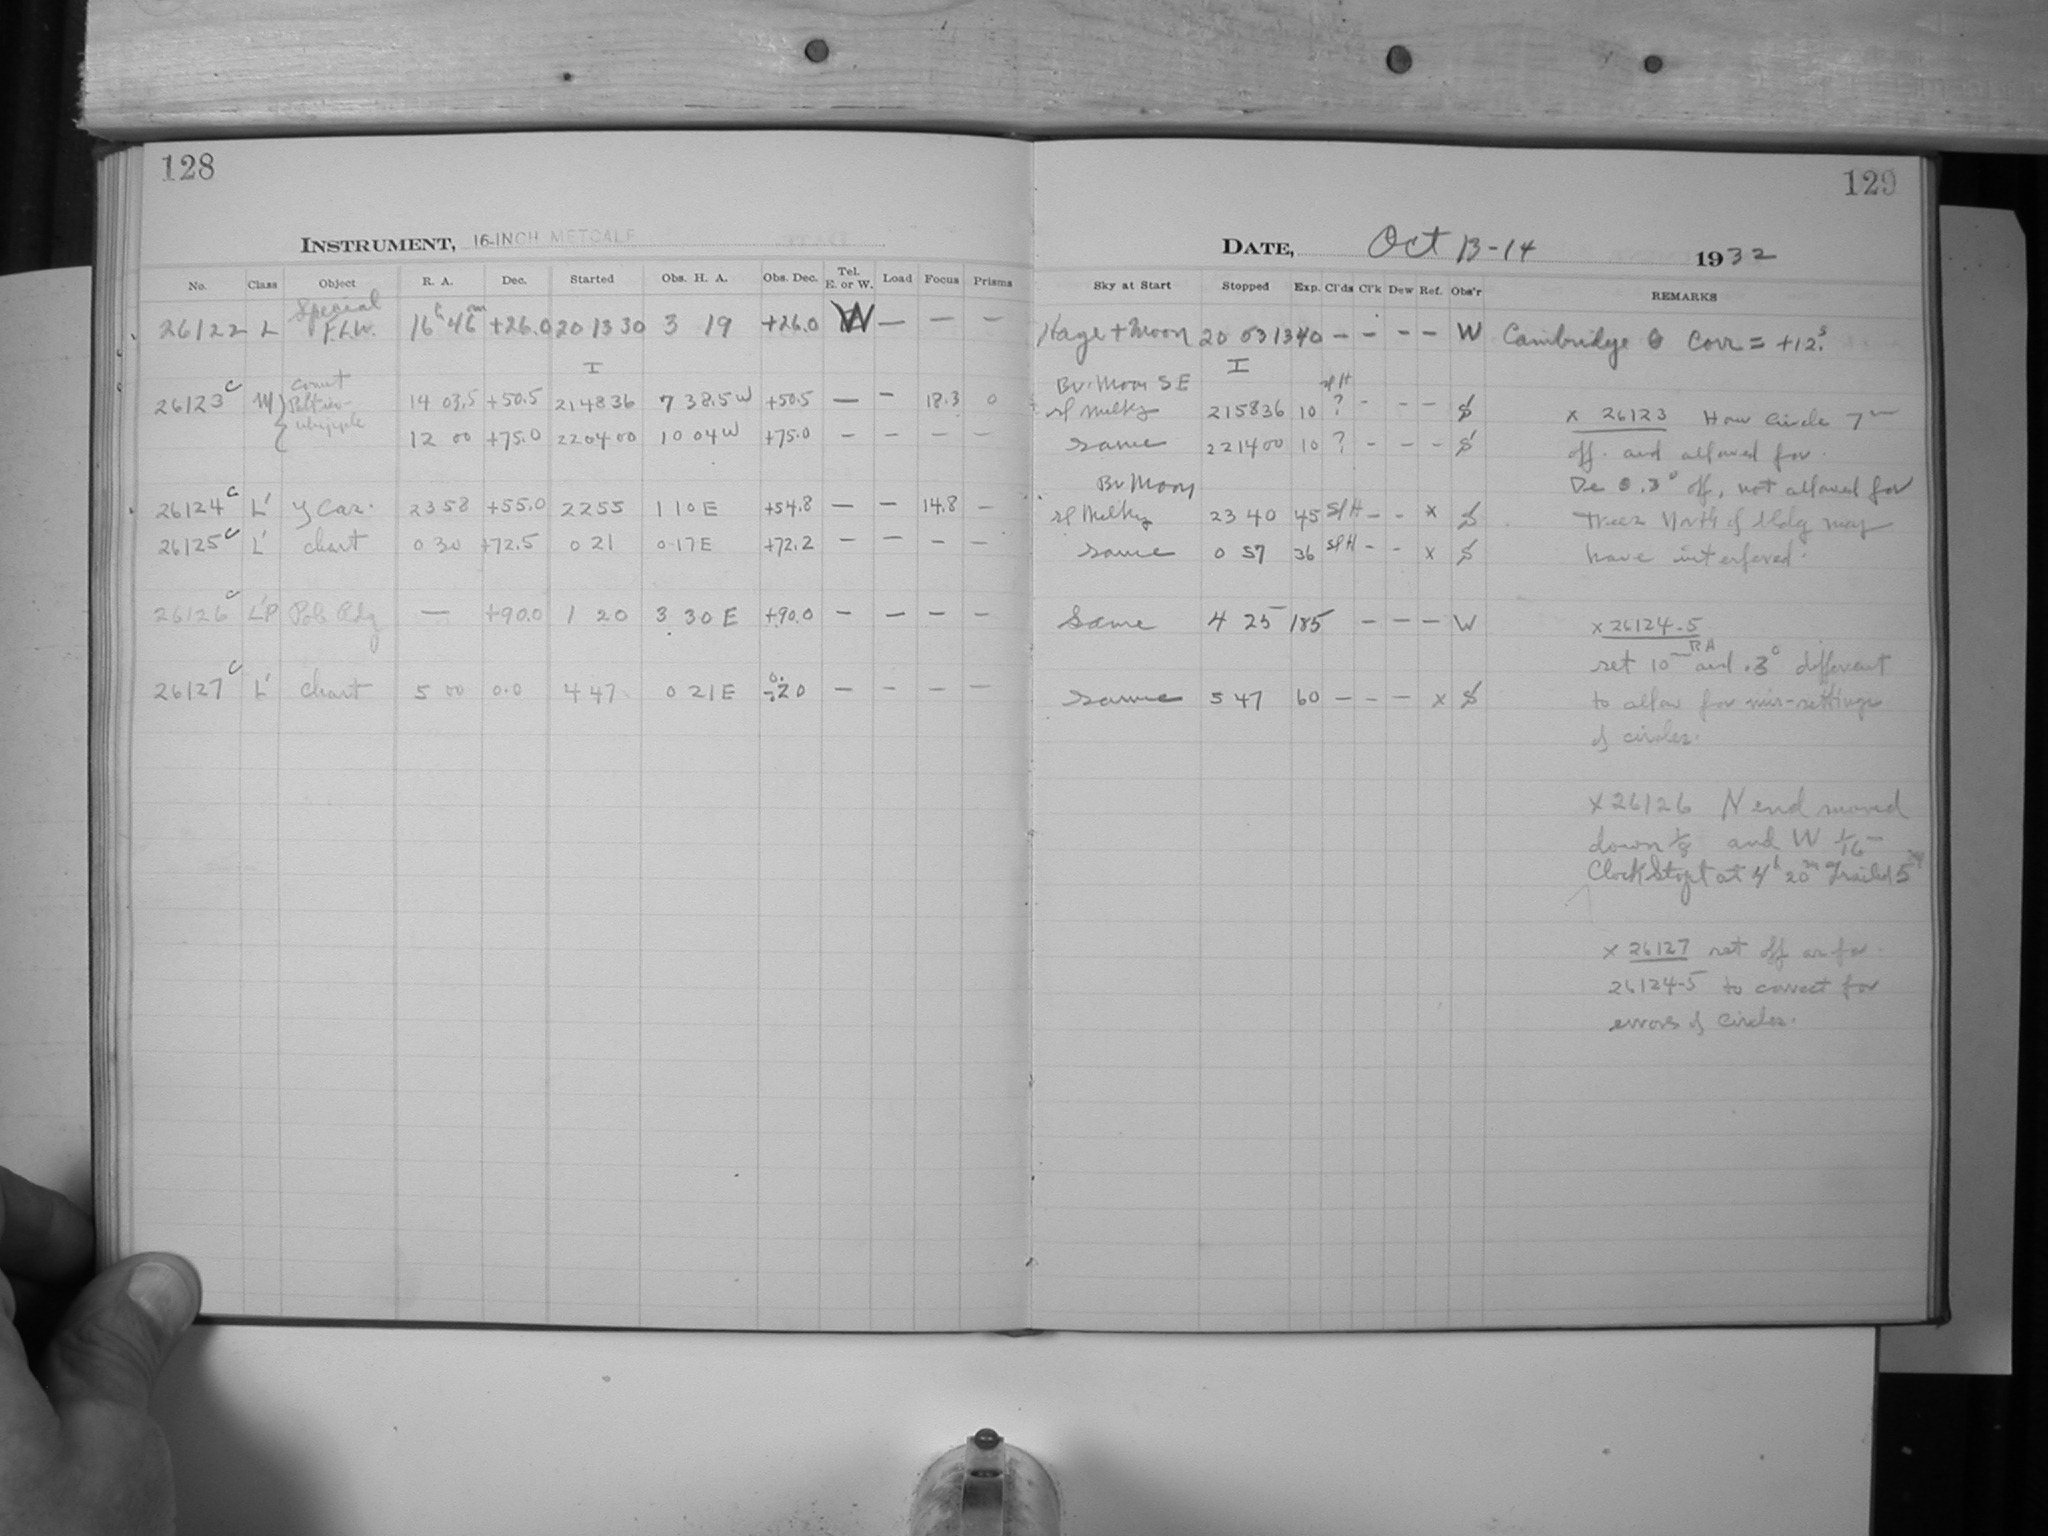 128
129
INSTRUMENT, 16-INCH METCALF
DATE, Oct 13-14 1932
No. Class Object R. A. Dec. Started Obs. H. A. Obs. Dec. Tel. E. or W. Load Focus Prisms
Sky at Start Stopped Exp. Cl'ds Cl'k Dew Ref. Obs'r REMARKS
Special
26122 L F.L.W. 16h 46m +26.0 20 13 30 3 19 +26.0 W — — —
Haze + Moon 20 0313 40 — — — — W Cambridge Corr = +12s.
I
I
26123 c M Comet Peltier-Whipple 14 03.5 +50.5 214836 7 38.5 W +50.5 — — 18.3 0
Br. Moon SE
sl milky 215836 10 ? - - -
12 00 +75.0 220400 10 04 W +75.0 — — — —
same 221400 10 ? - - -
x 26123 Hour Circle 7m
off. and allowed for.
De 0.3° off, not allowed for
trees North of bldg may
have interfered.
Br Moon
26124 c L' γ Cas. 23 58 +55.0 2255 1 10 E +54.8 — — 14.8 —
sl Milky 23 40 45 SlH - - x
26125 c L' chart 0 30 +72.5 0 21 0 17 E +72.2 — — — —
same 0 57 36 SlH - - x
26126 c L'P Pole Rdg — +90.0 1 20 3 30 E +90.0 — — — —
Same 4 25 185 — — — — W
x 26124-5
set 10m RA and .3° different
to allow for mis-settings
of circles.
26127 c L' chart 5 00 0.0 4 47 0 21 E — — — —
same 5 47 60 — — — x
x 26126 N end moved
down 1/8 and W 1/16 —
Clock Stopt at 4h 20m Trailed 5m
x 26127 set off as for
26124-5 to correct for
errors of circles.